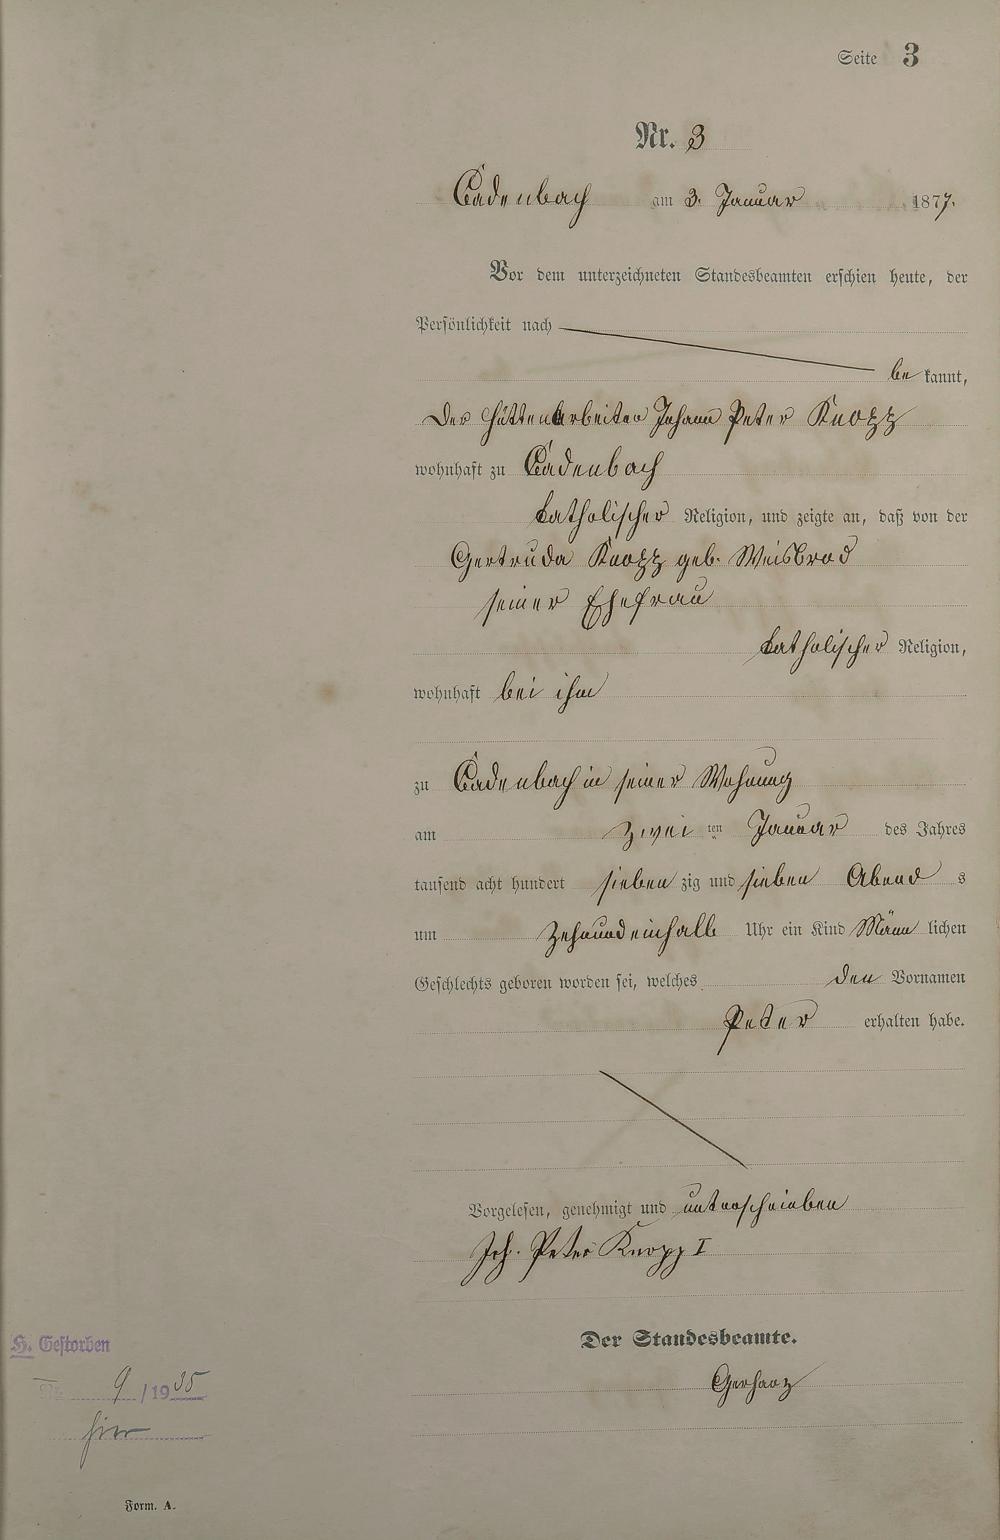 Seite 3
Nr. 3
Cadenbach am 3. Januar 1877.
Vor dem unterzeichneten Standesbeamten erschien heute, der
Persönlichkeit nach
be kannt,
der Hüttenarbeiter Johann Peter Knopp
wohnhaft zu Cadenbach
katholischer Religion, und zeigte an, daß von der
Gertruda Knopp geb. Weisbrod
seiner Ehefrau
katholischer Religion,
wohnhaft bei ihm
zu Cadenbach in seiner Wohnung
am zwei ten Januar des Jahres
tausend acht hundert sieben zig und sieben Abend s
um Zehnundeinhalb Uhr ein Kind Männ lichen
Geschlechts geboren worden sei, welches den Vornamen
Peter erhalten habe.
Vorgelesen, genehmigt und unterschrieben
Joh. Peter Knopp I
Der Standesbeamte.
Gerharz
H. Gestorben
Nr. 9 /1935
hier
Form. A.